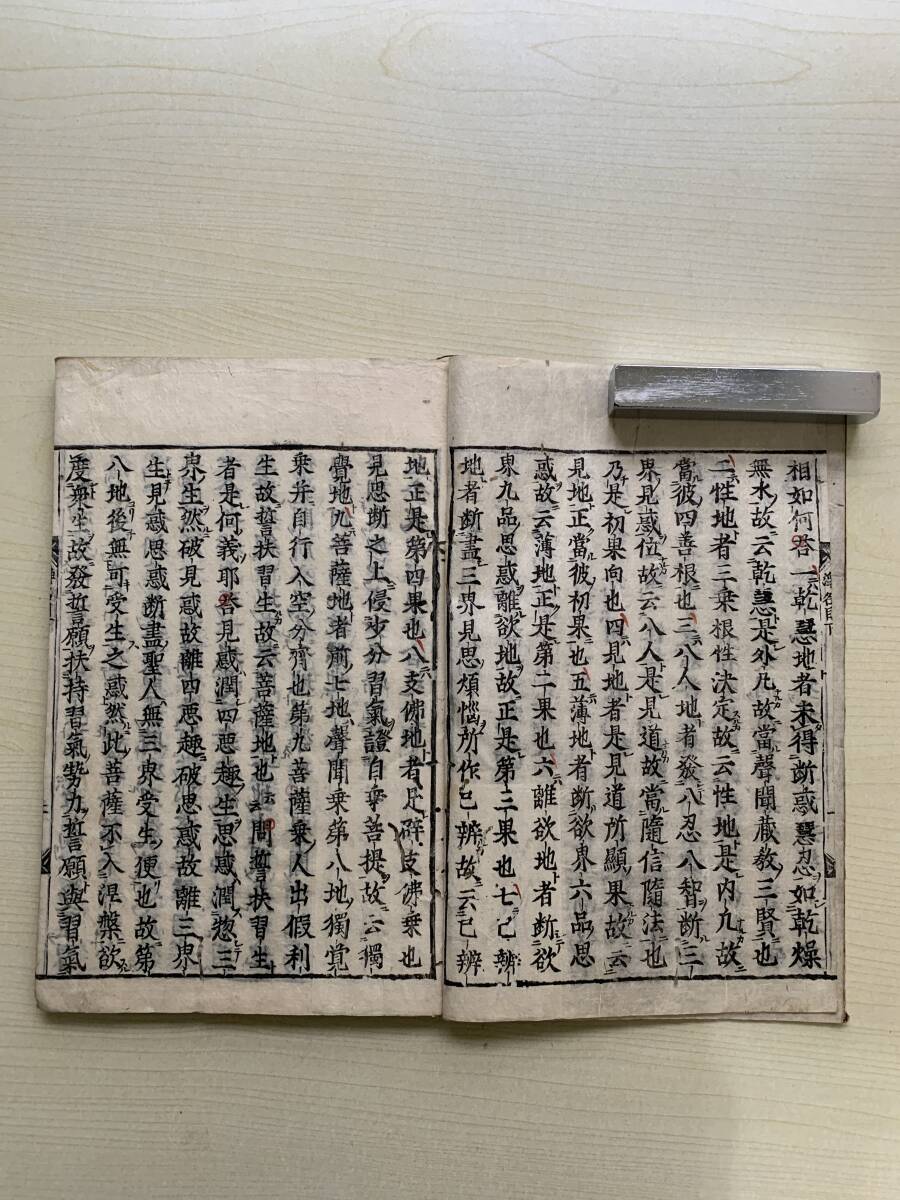 相如何答一乾慧地者未得斷惑慧忍如乾燥
無水故云乾慧是外凡故當聲聞藏教三賢也
二性地者三乗根性決定故云性地是内凡故
當彼四善根也三八人地者發八忍八智斷三
界見惑位故云八人是見道故當隨信隨法也
乃是初果向也四見地者是見道所顯果故云
見地正當彼初果也五薄地者斷欲界六品思
惑故云薄地正是第二果也六離欲地者斷欲
界九品思惑離欲地故正是第三果也七已辨
地者斷盡三界見思煩惱所作已辨故云已辨
地正是第四果也八支佛地者是辟支佛乗也
見思斷之上侵少分習氣證自乗菩提故云獨
覺地九菩薩地者前七地聲聞乗第八地獨覺
乗并自行入空分齊也第九菩薩乗人出假利
生故誓扶習生故云菩薩地也問誓扶習生
者是何義耶答見惑潤四惡趣生思惑潤惣三
界生然破見惑故離四惡趣破思惑故離三界
生見惑思惑斷盡聖人無三界受生便也故第
八地後無可受生之惑然此菩薩不入涅槃欲
度衆生故發誓願扶持習氣勢力誓願與習氣